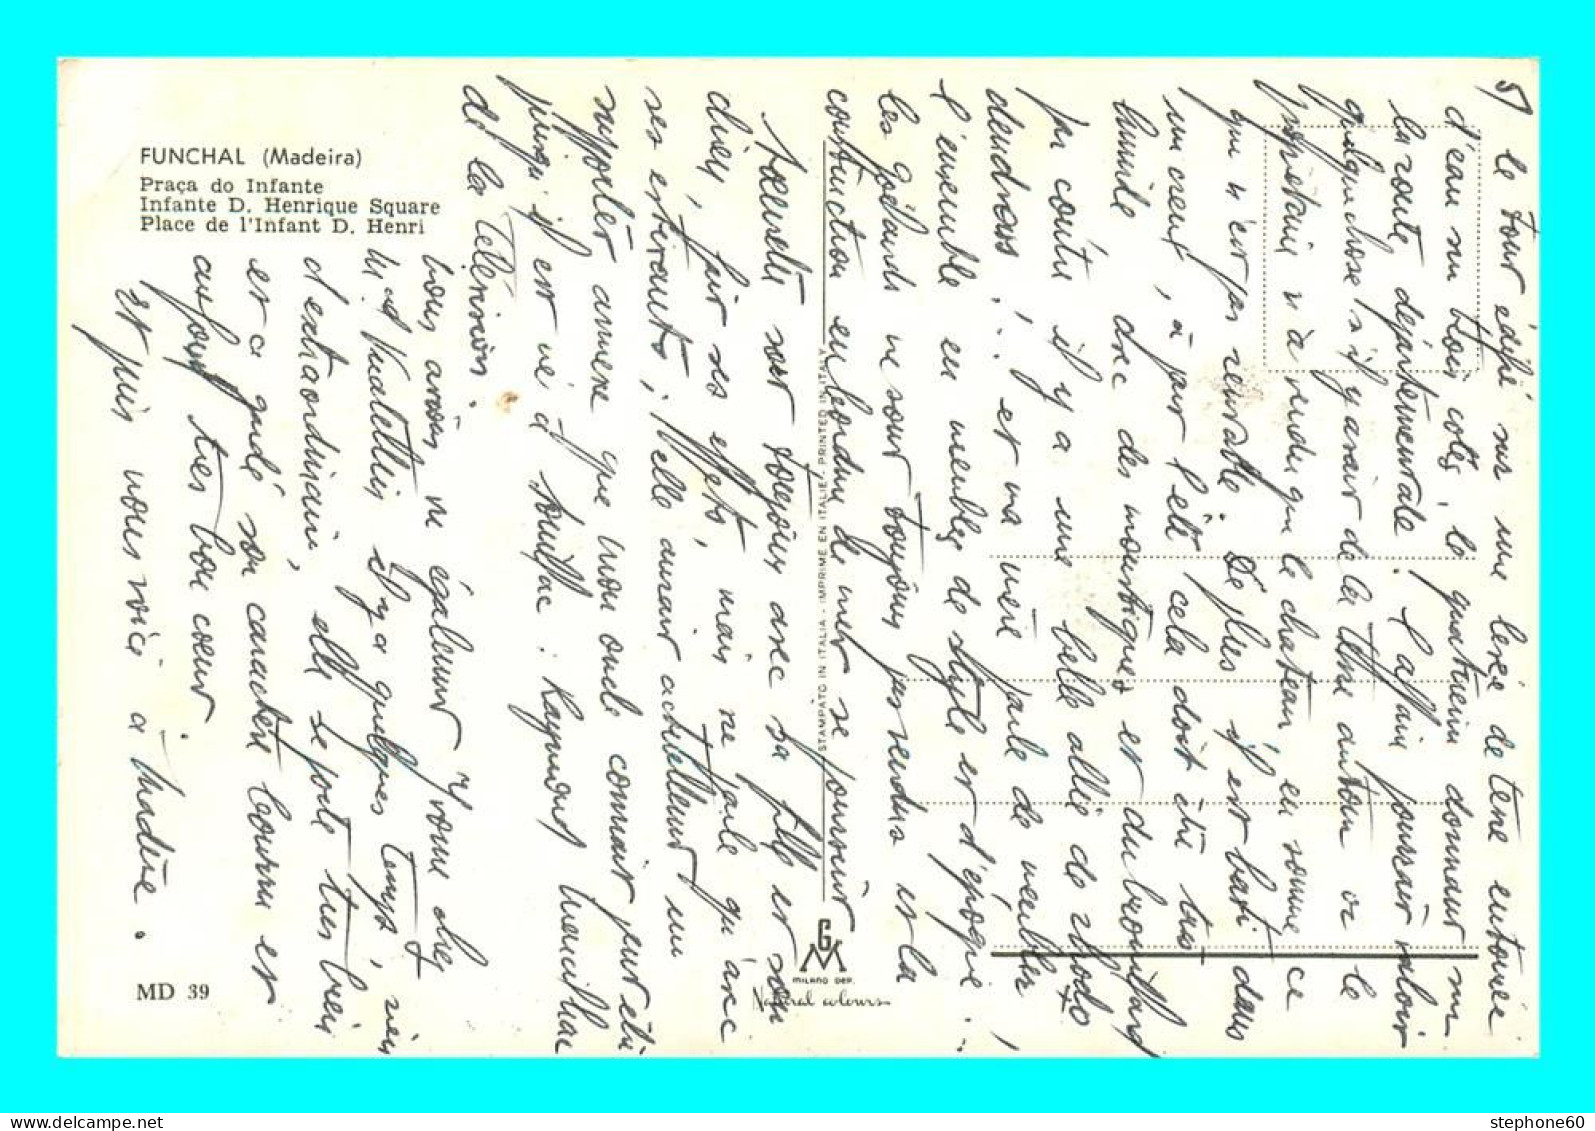 FUNCHAL (Madeira)
Praça do Infante
Infante D. Henrique Square
Place de l'Infant D. Henri
MD 39
STAMPATO IN ITALIA - IMPRIME EN ITALIE - PRINTED IN ITALY
GM
MILANO DEP.
Natural colours
5) le tour édifié sur une levée de terre entourée
d'eau sur trois cotés, le quatrième donnant sur
la route départementale. L'affaire pourrait valoir
quelque chose s'il y avait de la terre autour or le
propriétaire n'a vendu que le chateau en somme ce
qui n'est pas rentable. De plus il est bati dans
un creux, à part l'été cela doit être très
humide avec des moustiques et du brouillard
par contre il y a une belle allée de rhodo
dendrons, .. et ma mère parle de vendre,
l'ensemble en meubles de style et d'époque.
les goëlands ne sont toujours pas vendus et la
construction en bordure de mer se poursuit
toujours avec sa fille et son
chien, fait ses effets, mais ne parle qu'avec
ses estivants, elle aurait actuellement un
annexe que mon oncle connait peut être
puisqu'il est né à Souillac. Raymond Mouilhac
de la télévision.
Nous avons vu également Yvonne chez
il y a quelques temps, rien
d'extraordinaire, elle se porte très bien
et a gardé son caractère comme est
aussi très bon coeur.
et puis nous voici à Madère.
stephone60